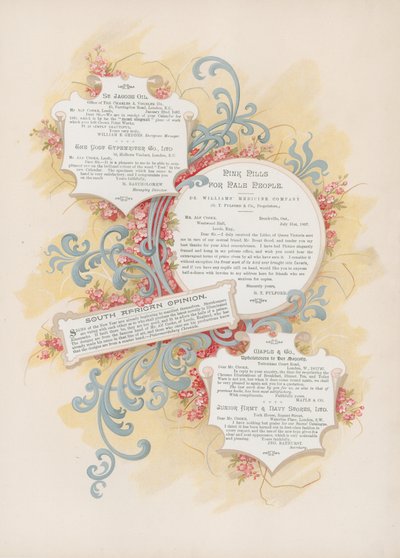 St Jacobs Oil.
Office of THE CHARLES A. VOGELER CO.
45, Farringdon Road, London, E.C.
Mr. ALF COOKE, Leeds. January 22nd 1897.
Dear Sir,—We are in receipt of your Calendar for
1897, and it is by far the "most elegant" piece of work
which ever left Crown Point Works.
IT IS SIMPLY BEAUTIFUL.
Yours very truly,
WILLIAM B. GEDDES Manager
The Yost Typewriter Co., Ltd
50, Holborn Viaduct, London, E.C.
Mr. ALF COOKE, Leeds.
Dear Sir,—It is a pleasure to me to be able to
you on the brilliant colour of the word "Yost" in the
new Calendar. The specimen which has come to
hand is very satisfactory, and I congratulate you
on the result Yours faithfully,
M. BARTHOLOMEW
Managing Director.
Pink Pills
for Pale People.
DR. WILLIAMS' MEDICINE COMPANY
(G. T. FULFORD & Co., Proprietors.)
Mr. ALF COOKE, Brockville, Ont.,
Westwood Hall, July 31st, 1897.
Leeds, Eng.
Dear Sir:—I duly received the Litho. of Queen Victoria sent
me in care of our mutual friend, Mr. Brent Good, and tender you my
best thanks for your kind remembrance. I have had Picture elegantly
framed and hung in my private office, and wish you could hear the
extravagant terms of praise given to all who have seen it. I consider it
without exception the finest work of its kind ever brought into Canada,
and if you have any copies still on hand, would like you to express
half-a-dozen with invoice to my address here for friends who are
anxious for copies.
Sincerely yours,
G. T. FULFORD.
SOUTH AFRICAN OPINION.
Maple & Co.
Upholsterers to Her Majesty.
Tottenham Court Road,
Dear Mr. COOKE, London, W.,
In reply to your enquiry, the
Chromo Illustrations of Breakfast, Dinner, Tea, and Toilet
Ware is not yet, but when it does come round again, we shall
be very pleased to again ask you for a quotation.
The last work done by you for us, as also in that of
previous books, has been most satisfactory.
With compliments. Faithfully yours,
MAPLE & CO.
Junior Army & Navy Stores, Ltd.
York House, Regent Street,
Dear Mr. COOKE, Waterloo Place, London, S.W.
I have nothing but praise for our Season Catalogue.
I think it has been turned out in first-class fashion in
every respect, and the use of the new type gives it a
clear and neat appearance, which is very noticeable
and pleasing. Yours faithfully,
JNO. BARHURST,
Secretary.